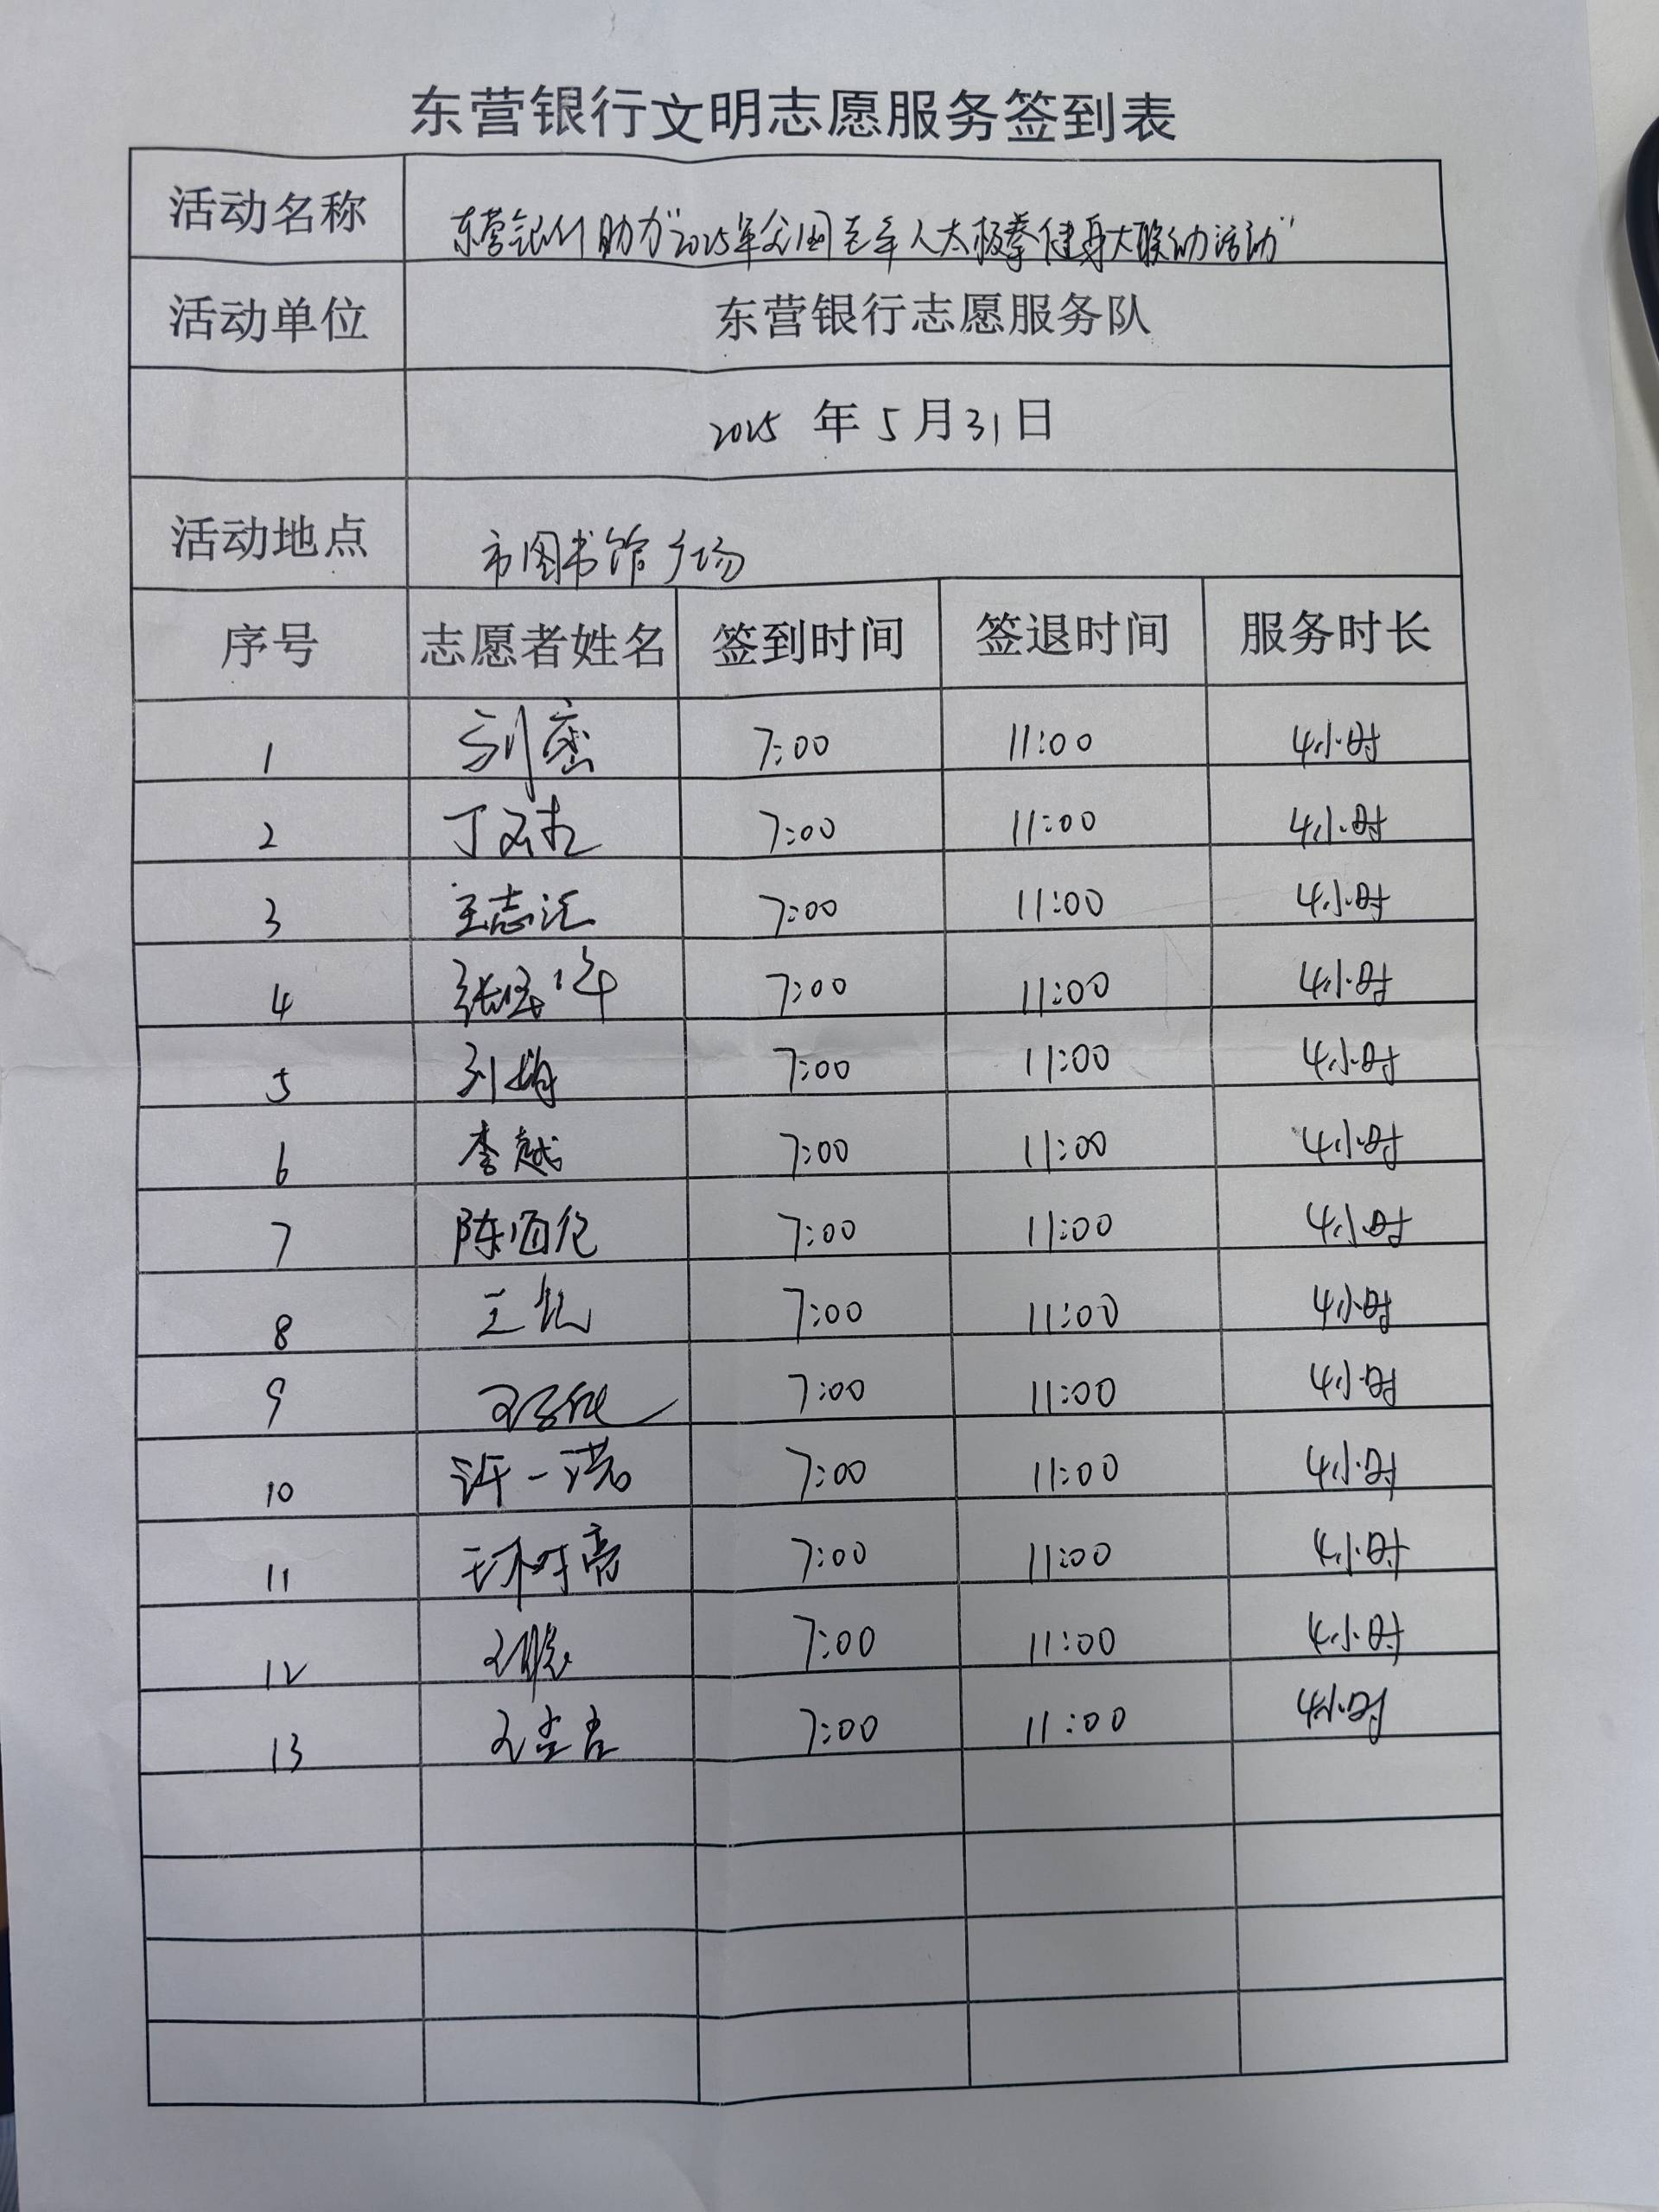 东营银行文明志愿服务签到表
活动名称 东营银行助力"2025年全国老年人太极拳健身大联动活动"
活动单位 东营银行志愿服务队
2025 年 5 月 31 日
活动地点 市图书馆广场
序号 志愿者姓名 签到时间 签退时间 服务时长
1 7:00 11:00 4小时
2 丁 7:00 11:00 4小时
3 王志汇 7:00 11:00 4小时
4 张 7:00 11:00 4小时
5 刘娟 7:00 11:00 4小时
6 李越 7:00 11:00 4小时
7 陈 7:00 11:00 4小时
8 王 7:00 11:00 4小时
9 7:00 11:00 4小时
10 许一诺 7:00 11:00 4小时
11 7:00 11:00 4小时
12 7:00 11:00 4小时
13 7:00 11:00 4小时